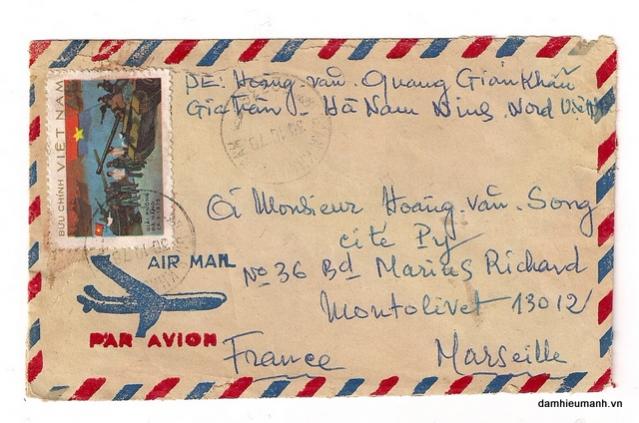 DE: Hoàng Văn Quang Gián Khẩu
Gia Trấn - Hà Nam Ninh, Nord Việt
BƯU CHÍNH VIỆT NAM
30.10.79
à Monsieur Hoàng Văn Song
cité Py
AIR MAIL
No 36 Bd Marius Richard
Montolivet 13012
PAR AVION
France Marseille
damhieumanh.vn